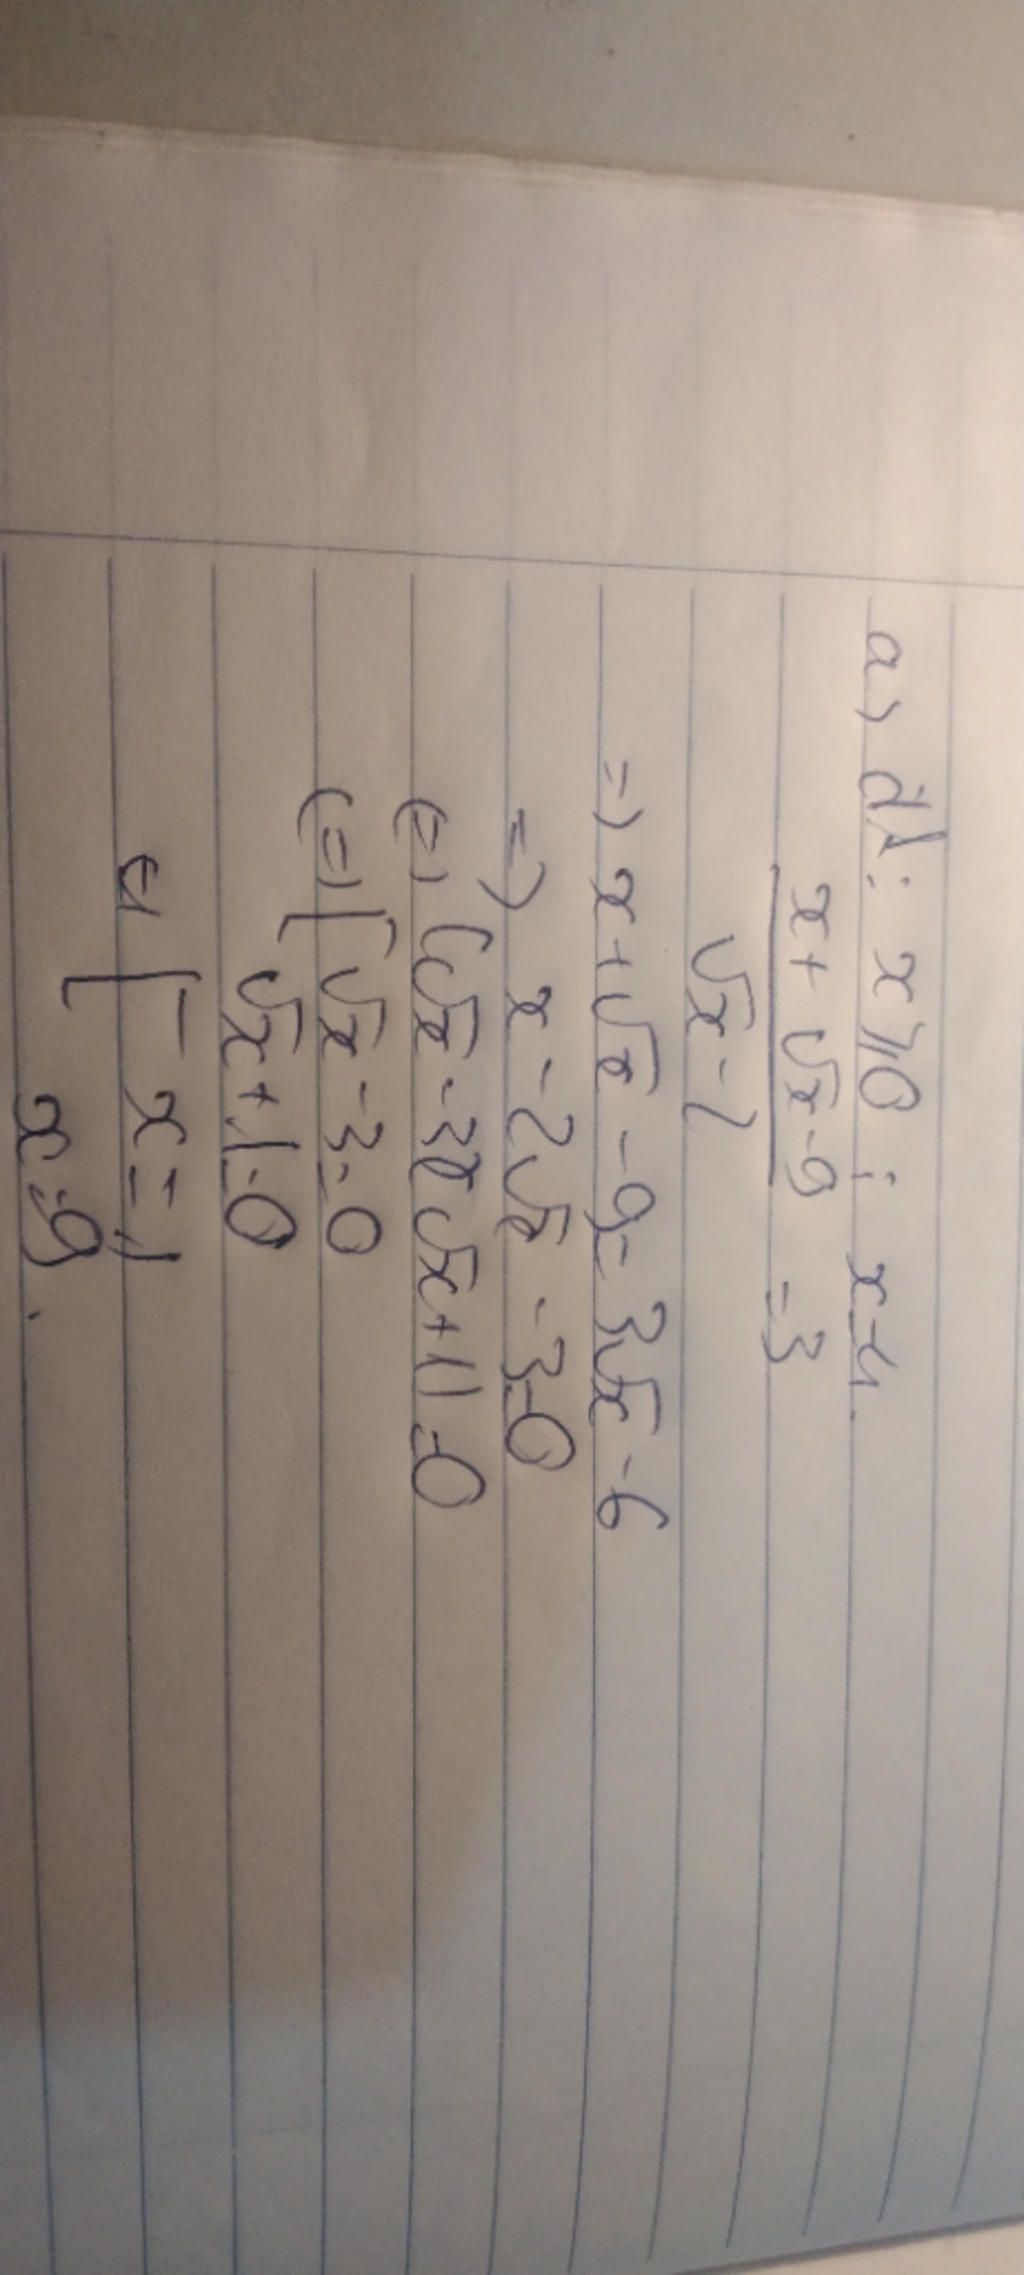 a, đk: x ≥ 0 ; x = 4.
x + √x - 9 = 3
√x - 2
=) x + √x - 9 = 3√x - 6
=) x - 2√x - 3 = 0
(=) (√x - 3)(√x + 1) = 0
(=) [ √x - 3 = 0
√x + 1 = 0
(=) [ x = 1
x = 9.